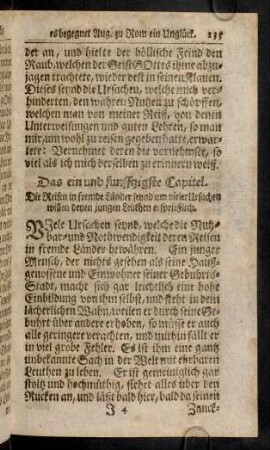 es begegnet Aug. zu Rom ein Unglück. 235
der an, und hielte der höllische Feind den
Raub, welchen der Geist GOttes ihme abzu-
jagen trachtete, wieder vest in seinen Klauen.
Dieses seynd die Ursachen, welche mich ver-
hinderten, den wahren Nutzen zu schöpffen,
welchen man von meiner Reiß, von denen
Unterweisungen und guten Lehren, so man
mir, um wohl zu reisen gegeben hatte, erwar-
tete: Vernehmet deren die vornehmste, so
viel als ich mich der selben zu erinnern weiß.
Das ein und fünffzigste Capitel.
Die Reisen in fremde Länder seynd um vieler Ursachen
willen denen jungen Leuthen ersprießlich.
VJele Ursachen seynd, welche die Nutz-
bar- und Nothwendigkeit deren Reisen
in fremde Länder bewähren. Ein junger
Mensch, der nichts gesehen als seine Hauß-
genossene und Einwohner seiner Geburths-
Stadt, macht sich gar leichtlich eine hohe
Einbildung von ihm selbst, und stehet in dem
lächerlichen Wahn, weilen er durch seine Ge-
buhrt über andere erhoben, so müsse er auch
alle geringere verachten, und mithin fällt er
in viel grobe Fehler. Es ist ihm eine gantz
unbekannte Sach in der Welt mit ehrbaren
Leuthen zu leben. Er ist gemeiniglich gar
stoltz und hochmüthig, siehet alles über den
Rucken an, und läßt bald hier, bald da seinen
J 4 Zanck-